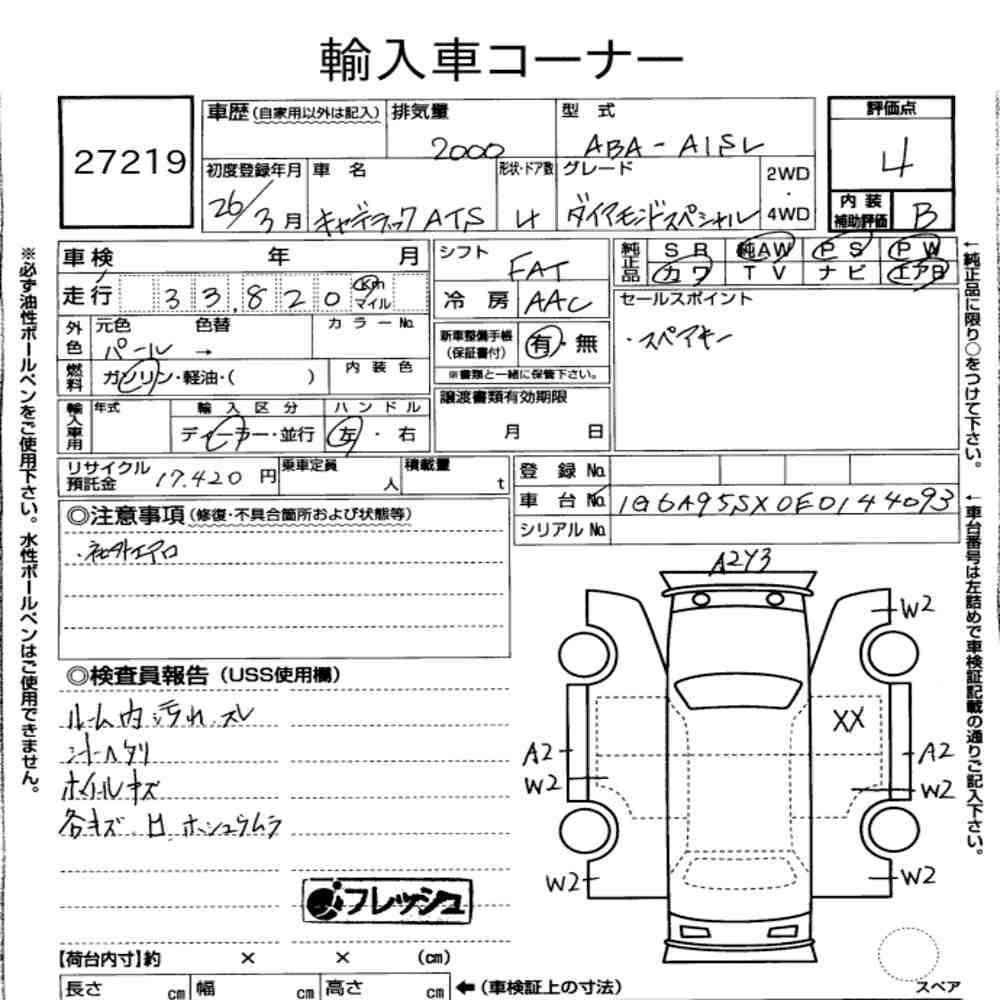 輸入車コーナー
27219
車歴(自家用以外は記入) 排気量 型式 評価点
2000 ABA-A1SL 4
初度登録年月 車名 形状・ドア数 グレード 2WD・4WD
26/3月 キャデラックATS 4 ダイアモンドスペシャル
内装補助評価 B
車検 年 月 シフト FAT 純正品 SR 純AW PS PW
カワ TV ナビ エアB
走行 33,820 Km マイル 冷房 AAC セールスポイント
・スペアキー
外色 元色 色替 カラーNo. 新車整備手帳(保証書付) 有・無
パール →
※書類と一緒に保管下さい。
燃料 ガソリン・軽油・( ) 内装色
譲渡書類有効期限
月 日
輸入車用 年式 輸入区分 ハンドル
ディーラー・並行 左・右
リサイクル預託金 17,420円 乗車定員 人 積載量 t
登録No.
車台No. 1G6A95SX0E0144093
シリアルNo.
◎注意事項(修復・不具合箇所および状態等)
・社外エアロ
◎検査員報告(USS使用欄)
ルーム内汚れ、スレ
シートヘタリ
ホイールキズ
各キズ
フレッシュ
A2Y3
W2
XX
A2 A2
W2 W2
W2 W2
スペア
【荷台内寸】約 × × (cm)
長さ cm 幅 cm 高さ cm ←(車検証上の寸法)
※必ず油性ボールペンをご使用下さい。水性ボールペンはご使用できません。
←純正品に限り○をつけて下さい。
←車台番号は左詰めで車検証記載の通りご記入下さい。